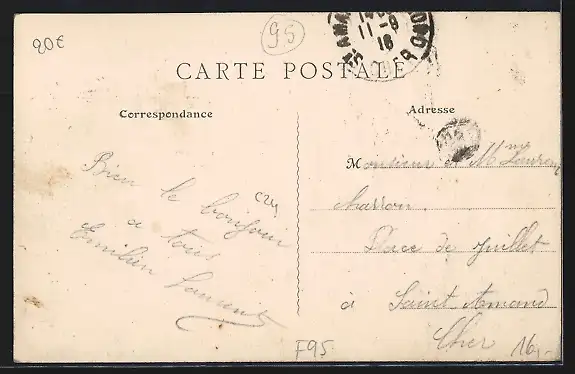 20€
95
ST AMAND
11-8
16
CHER
CARTE POSTALE
Correspondance
Adresse
Bien le bonjour
à tous
Emilien Laurent
c24
Monsieur et Mme Laurent
charron
Place de Juillet
à Saint Amand
Cher
F95
16,-